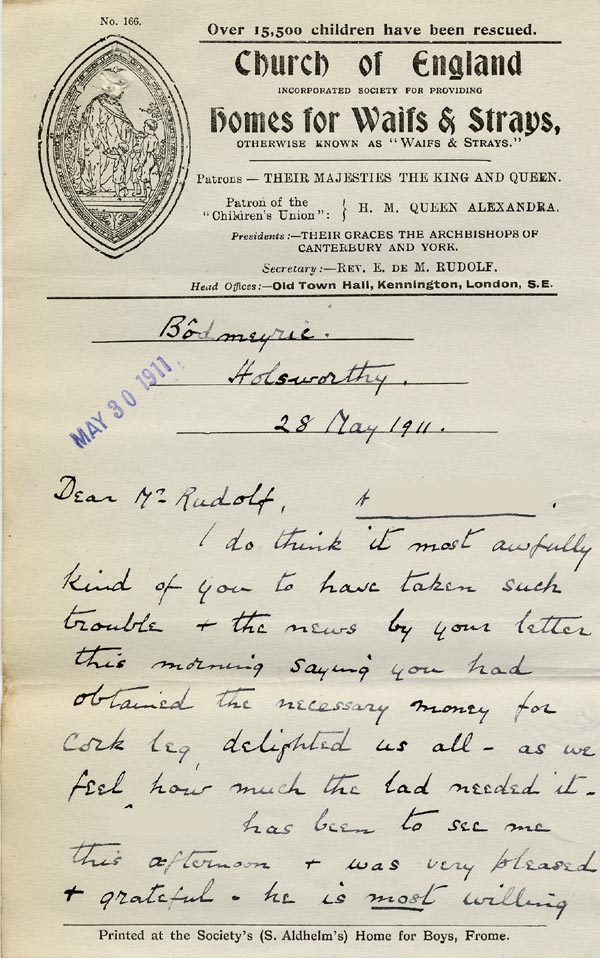 No. 166.
Over 15,500 children have been rescued.
Church of England
INCORPORATED SOCIETY FOR PROVIDING
Homes for Waifs & Strays,
OTHERWISE KNOWN AS "WAIFS & STRAYS."
Patrons — THEIR MAJESTIES THE KING AND QUEEN.
Patron of the "Children's Union": } H. M. QUEEN ALEXANDRA.
Presidents:—THEIR GRACES THE ARCHBISHOPS OF
CANTERBURY AND YORK.
Secretary:—REV. E. DE M. RUDOLF.
Head Offices:—Old Town Hall, Kennington, London, S.E.
Bôdmeyrie.
Holsworthy.
MAY 30 1911
28 May 1911.
Dear Mr Rudolf,
I do think it most awfully
kind of you to have taken such
trouble + the news by your letter
this morning saying you had
obtained the necessary money for
cork leg, delighted us all - as we
feel how much the lad needed it -
has been to see me
this afternoon + was very pleased
+ grateful - he is most willing
Printed at the Society's (S. Aldhelm's) Home for Boys, Frome.